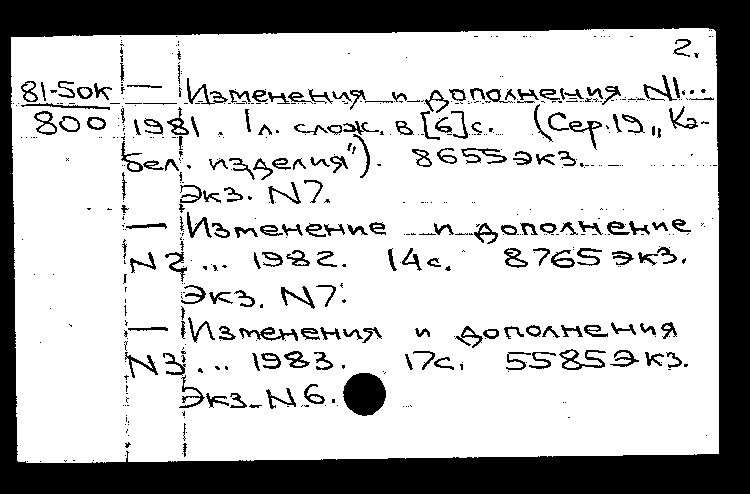 2.
81-50к — Изменения и дополнения N1...
800 1981. 1л. слож. в [6]с. (Сер.19 „Ка-
бел. изделия"). 8655 экз.
Экз. N7.
— Изменение и дополнение
N2 ... 1982. 14с. 8765 экз.
Экз. N7.
— Изменения и дополнения
N3 ... 1983. 17с. 5585 экз.
Экз. N6.